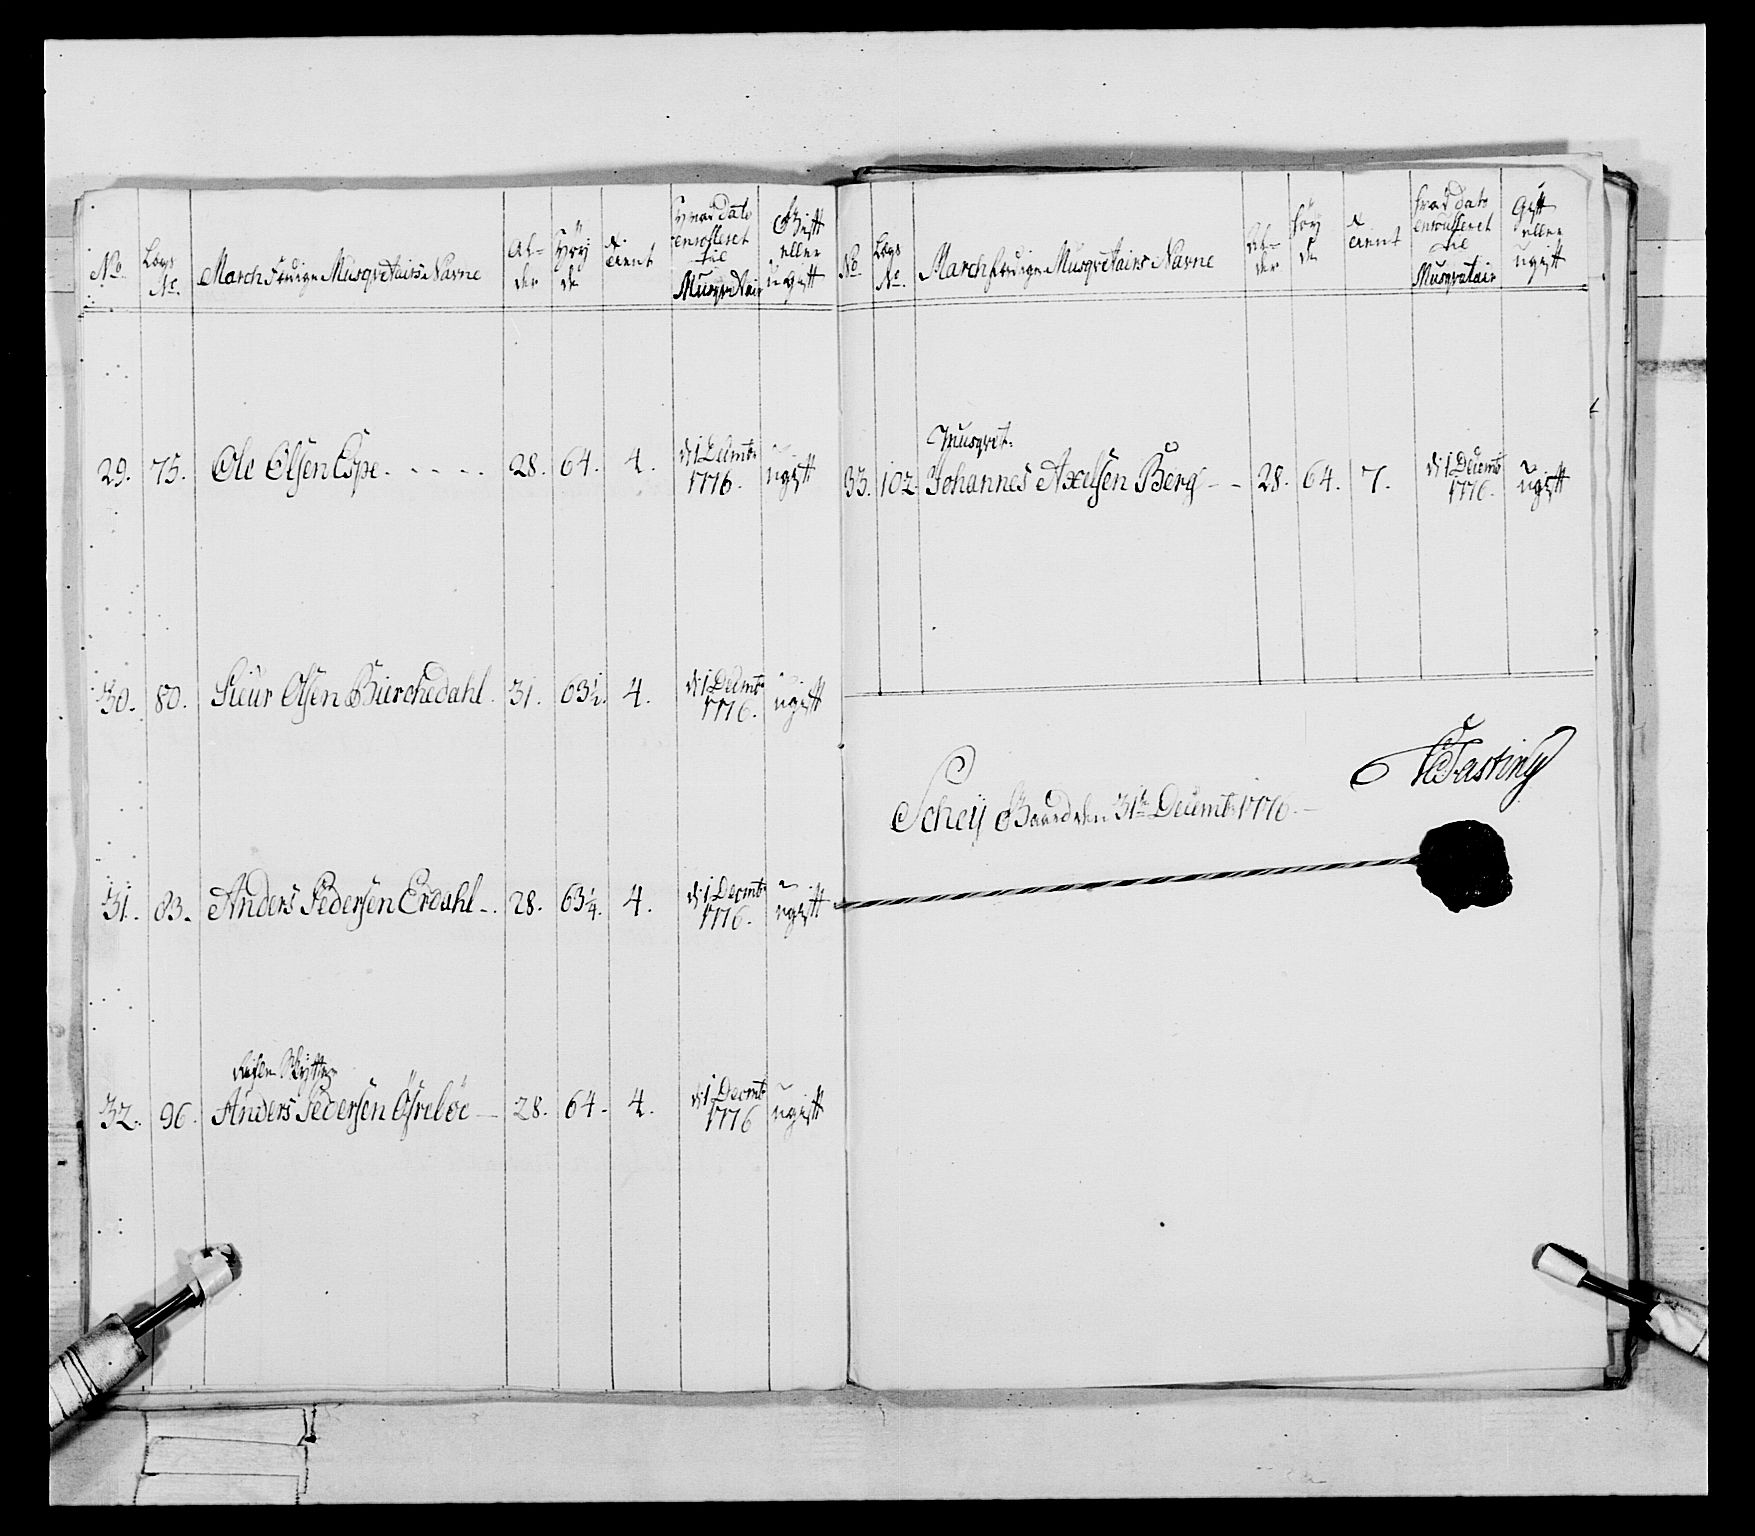 No. Lægs No. Marchferdige Musqvetairs Navne Al- der Høy de Exer cerent Hvad Dato enrolleret til Musqvetair Gift eller ugift
29. 75. Ole Olsen Espe. - - - - 28. 64. 4. d: 1 Decmbr 1776. ugift
30. 80. Sieur Olsen Bierchedahl. 31. 63½. 4. d: 1 Decmbr 1776. ugift
31. 83. Anders Pedersen Erdahl -. 28. 63¼. 4. d: 1 Decmbr 1776. ugift
32. 96. Anders Pedersen Øfrebøe - 28. 64. 4. d: 1 Decmbr 1776 ugift
No. Lægs No. Marchferdige Musqvetairs Navne Al- der Høy de Exer cerent Hvad Dato enrolleret til Musqvetair Gift eller ugift
Musqvet:
33. 102 Johannes Axelsen Berg - - 28. 64. 7. d: 1 Decemb 1776. ugift
Fasting
Scheij Gaard den 31te Decembr 1776. -